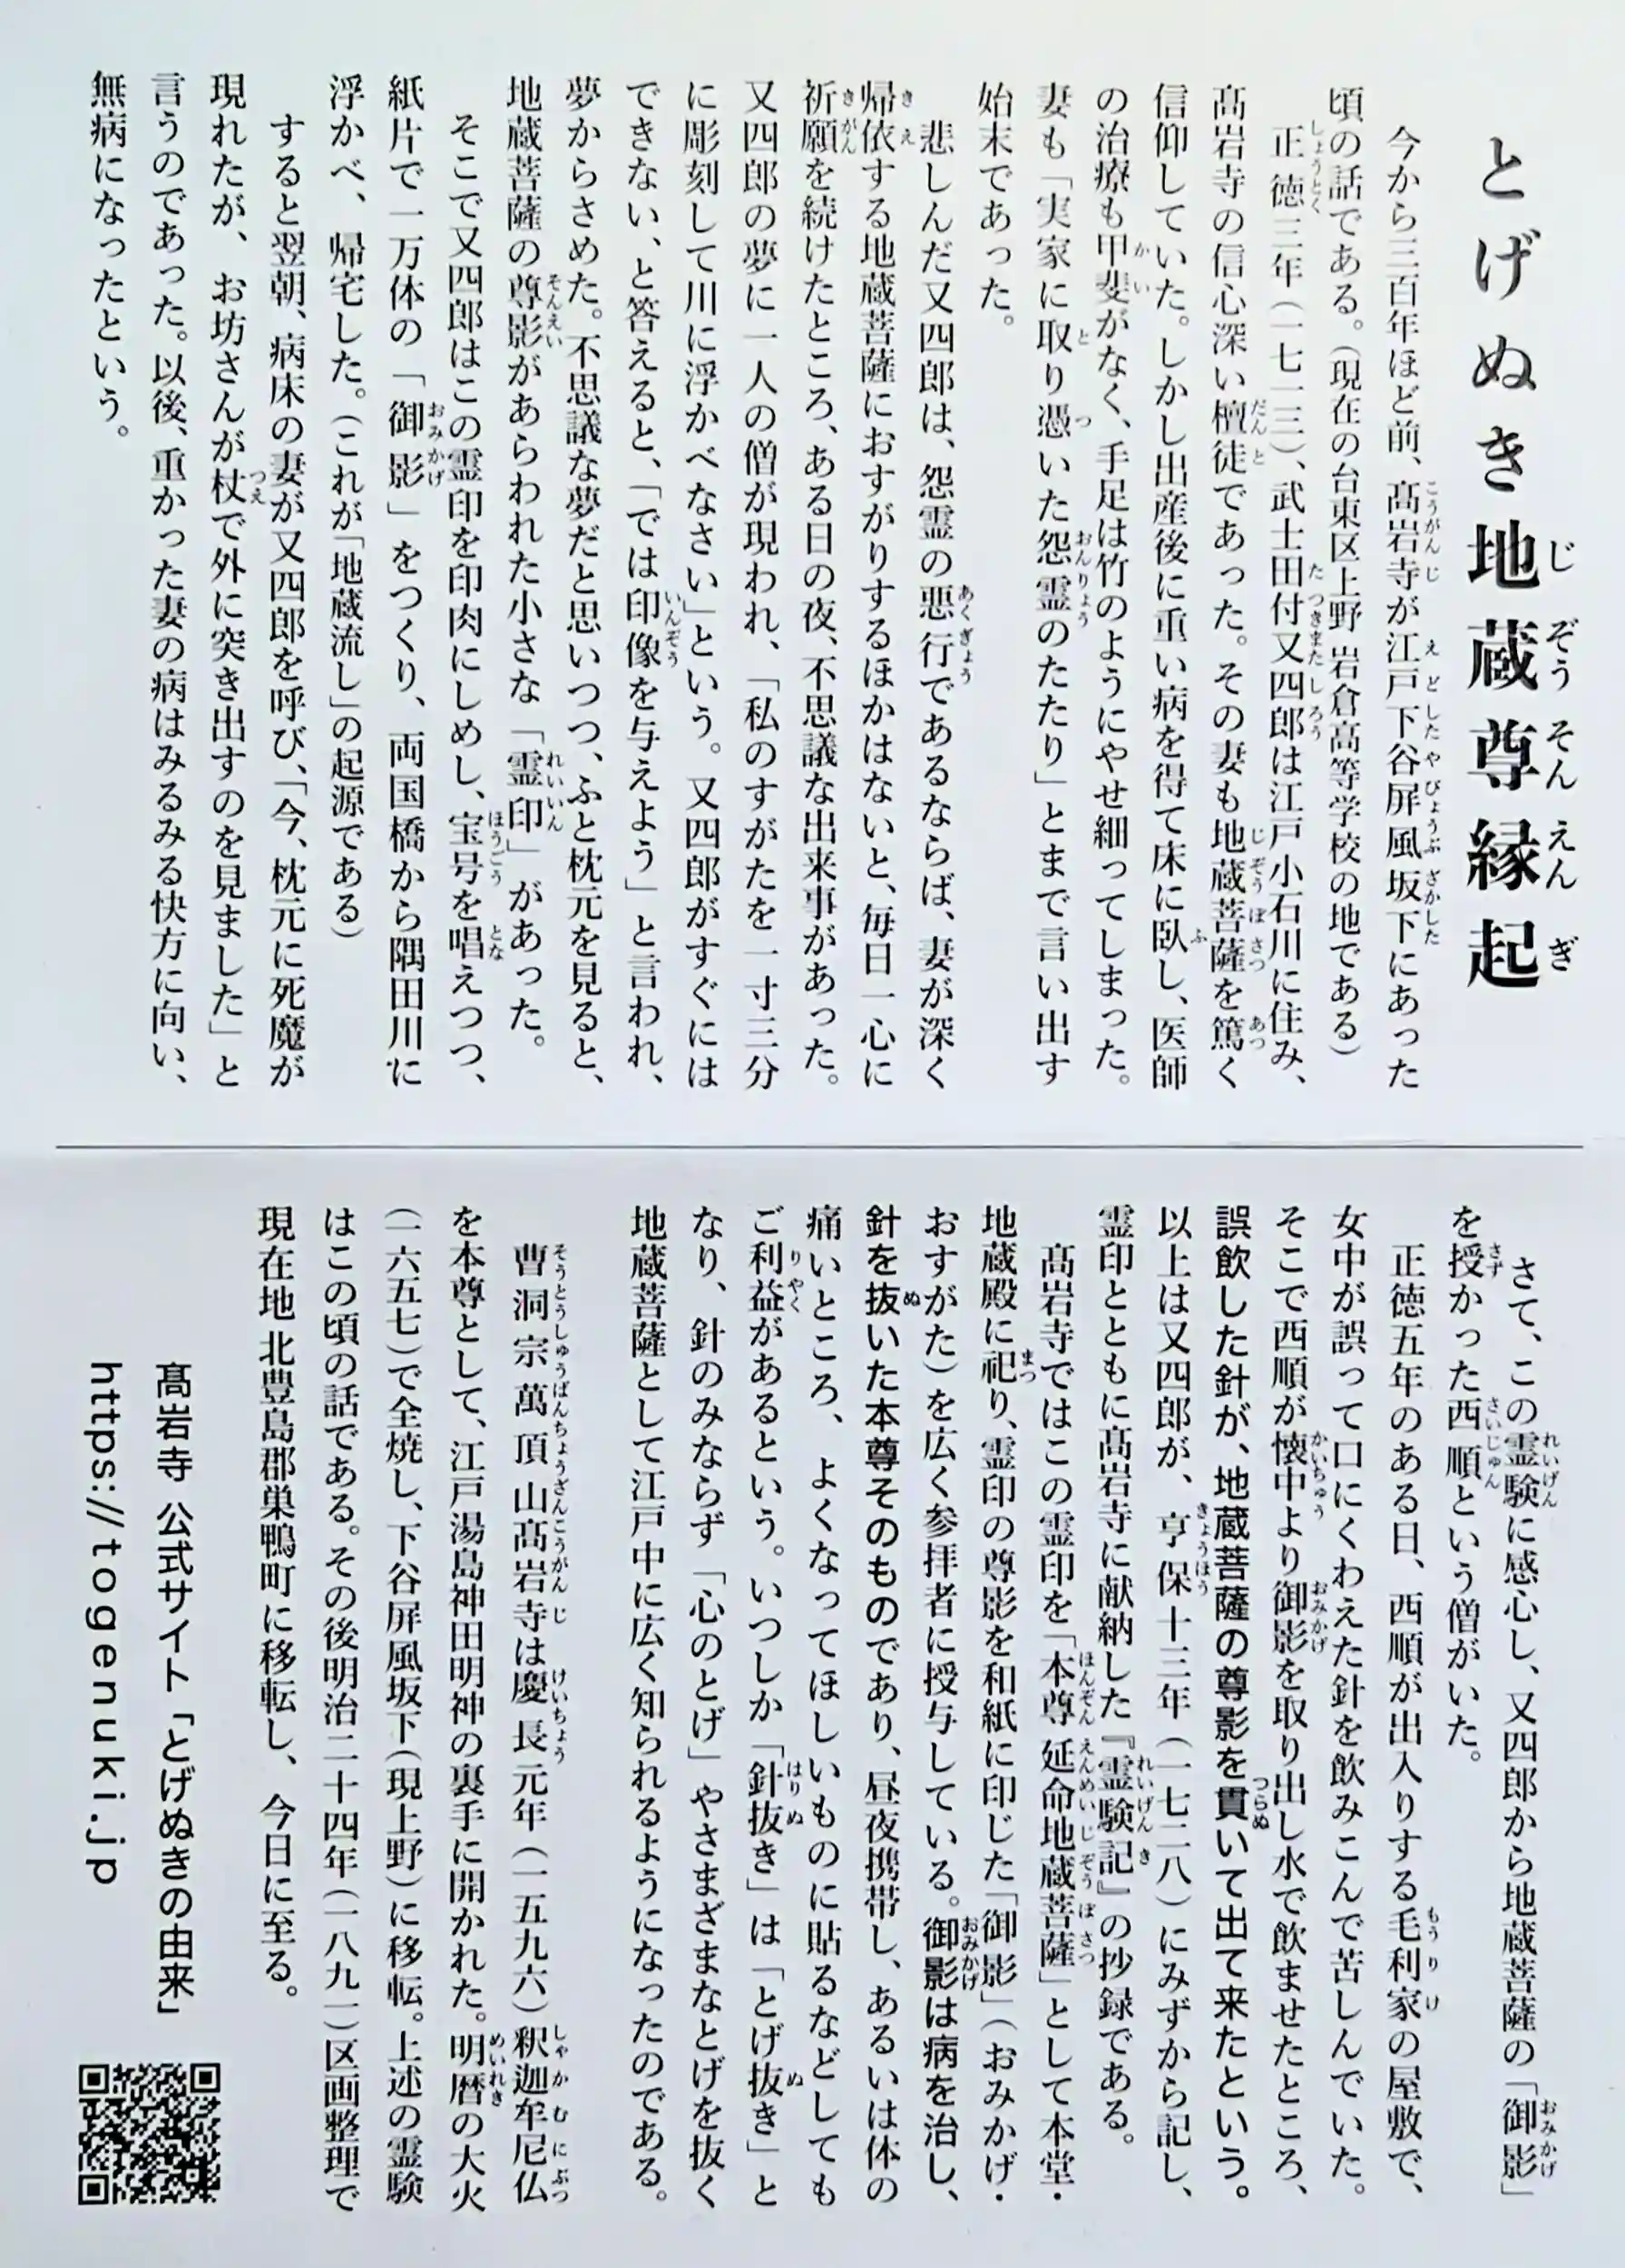 とげぬき地蔵尊縁起
今から三百年ほど前、髙岩寺が江戸下谷屏風坂下にあった
頃の話である。（現在の台東区上野 岩倉高等学校の地である）
正徳三年（一七一三）、武士田付又四郎は江戸小石川に住み、
髙岩寺の信心深い檀徒であった。その妻も地蔵菩薩を篤く
信仰していた。しかし出産後に重い病を得て床に臥し、医師
の治療も甲斐がなく、手足は竹のようにやせ細ってしまった。
妻も「実家に取り憑いた怨霊のたたり」とまで言い出す
始末であった。
悲しんだ又四郎は、怨霊の悪行であるならば、妻が深く
帰依する地蔵菩薩におすがりするほかはないと、毎日一心に
祈願を続けたところ、ある日の夜、不思議な出来事があった。
又四郎の夢に一人の僧が現われ、「私のすがたを一寸三分
に彫刻して川に浮かべなさい」という。又四郎がすぐには
できない、と答えると、「では印像を与えよう」と言われ、
夢からさめた。不思議な夢だと思いつつ、ふと枕元を見ると、
地蔵菩薩の尊影があらわれた小さな「霊印」があった。
そこで又四郎はこの霊印を印肉にしめし、宝号を唱えつつ、
紙片で一万体の「御影」をつくり、両国橋から隅田川に
浮かべ、帰宅した。（これが「地蔵流し」の起源である）
すると翌朝、病床の妻が又四郎を呼び、「今、枕元に死魔が
現れたが、お坊さんが杖で外に突き出すのを見ました」と
言うのであった。以後、重かった妻の病はみるみる快方に向い、
無病になったという。
さて、この霊験に感心し、又四郎から地蔵菩薩の「御影」
を授かった西順という僧がいた。
正徳五年のある日、西順が出入りする毛利家の屋敷で、
女中が誤って口にくわえた針を飲みこんで苦しんでいた。
そこで西順が懐中より御影を取り出し水で飲ませたところ、
誤飲した針が、地蔵菩薩の尊影を貫いて出て来たという。
以上は又四郎が、享保十三年（一七二八）にみずから記し、
霊印とともに髙岩寺に献納した『霊験記』の抄録である。
髙岩寺ではこの霊印を「本尊 延命地蔵菩薩」として本堂・
地蔵殿に祀り、霊印の尊影を和紙に印じた「御影」（おみかげ・
おすがた）を広く参拝者に授与している。御影は病を治し、
針を抜いた本尊そのものであり、昼夜携帯し、あるいは体の
痛いところ、よくなってほしいものに貼るなどしても
ご利益があるという。いつしか「針抜き」は「とげ抜き」と
なり、針のみならず「心のとげ」やさまざまなとげを抜く
地蔵菩薩として江戸中に広く知られるようになったのである。
曹洞宗 萬頂山髙岩寺は慶長元年（一五九六）釈迦牟尼仏
を本尊として、江戸湯島神田明神の裏手に開かれた。明暦の大火
（一六五七）で全焼し、下谷屏風坂下（現上野）に移転。上述の霊験
はこの頃の話である。その後明治二十四年（一八九一）区画整理で
現在地 北豊島郡巣鴨町に移転し、今日に至る。
髙岩寺 公式サイト「とげぬきの由来」
https://togenuki.jp